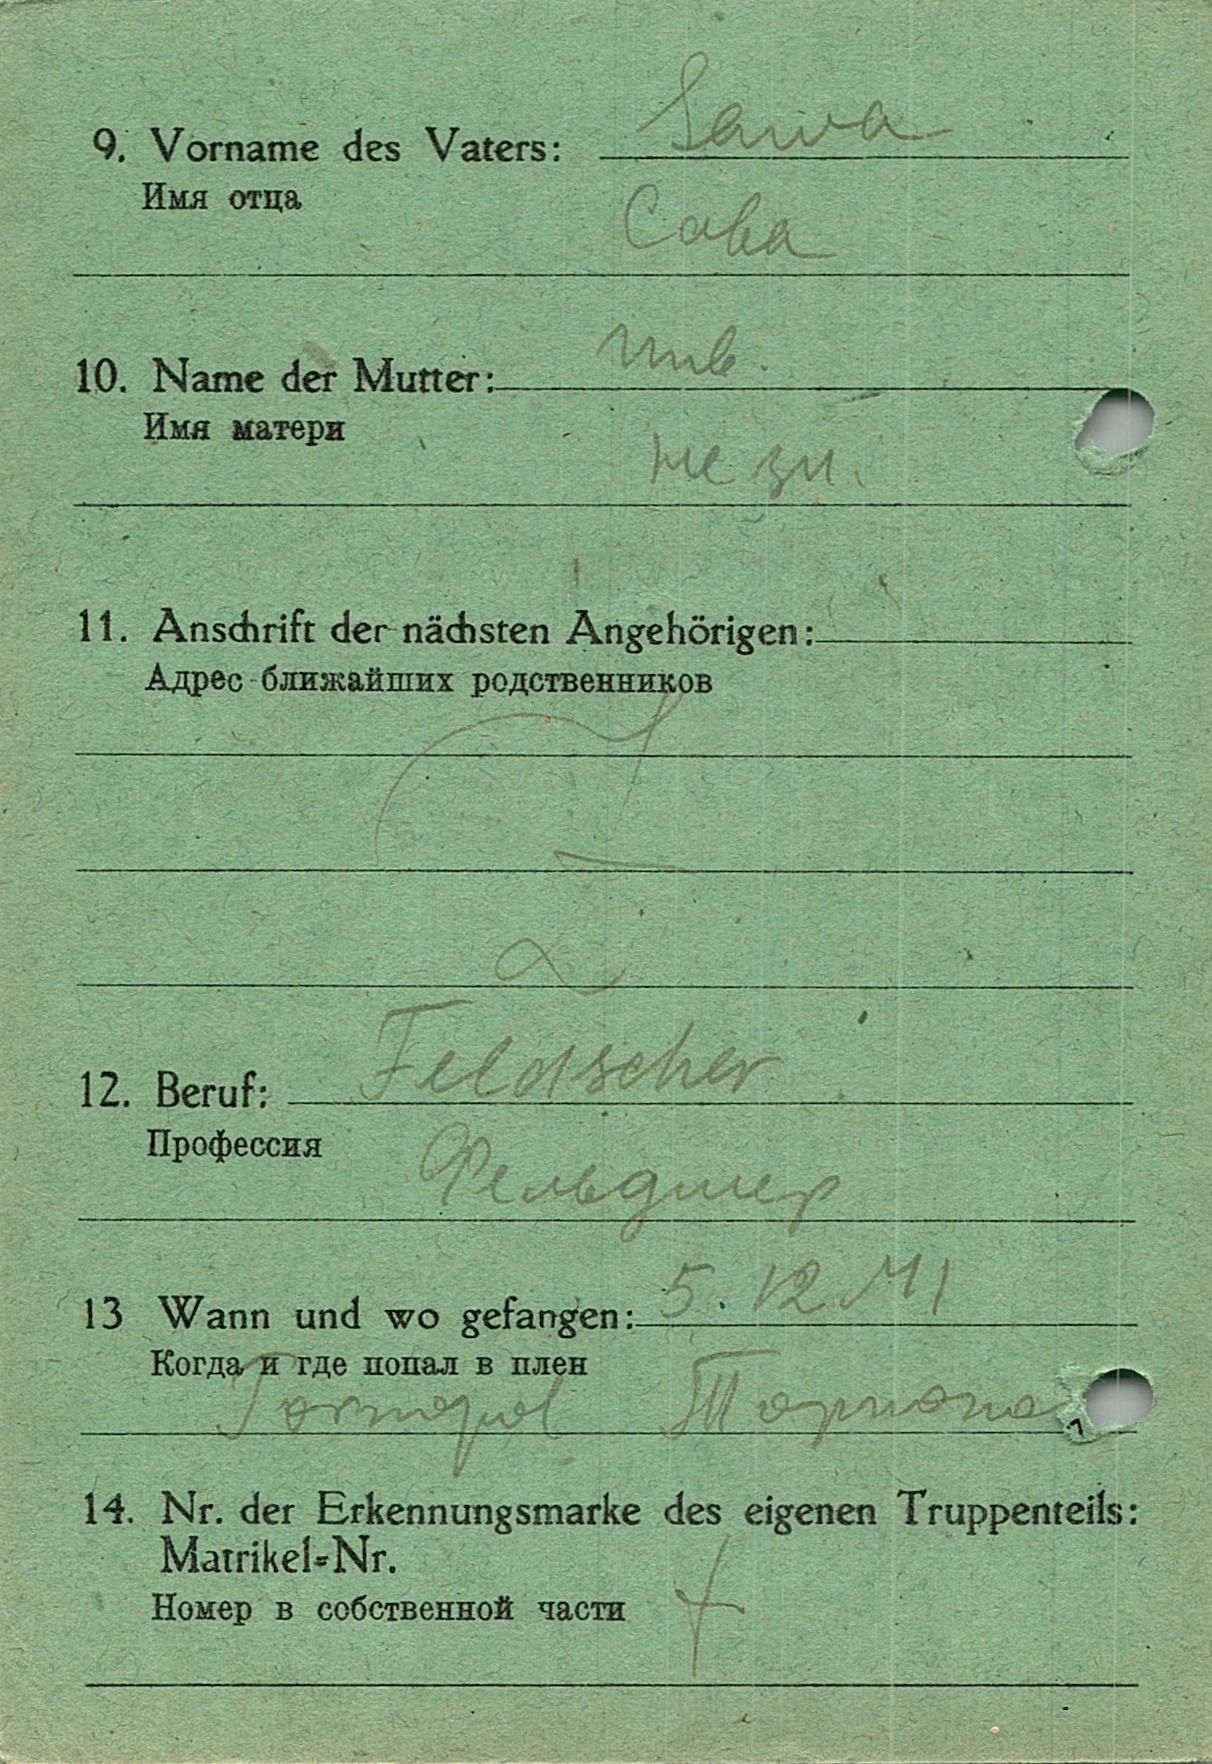 9. Vorname des Vaters: Sawa
Имя отца
Сава
10. Name der Mutter: unb.
Имя матери
не зн.
11. Anschrift der nächsten Angehörigen:
Адрес ближайших родственников
12. Beruf: Feldscher
Профессия
Фельдшер
13 Wann und wo gefangen: 5.12.41
Когда и где попал в плен
14. Nr. der Erkennungsmarke des eigenen Truppenteils:
Matrikel=Nr.
Номер в собственной части